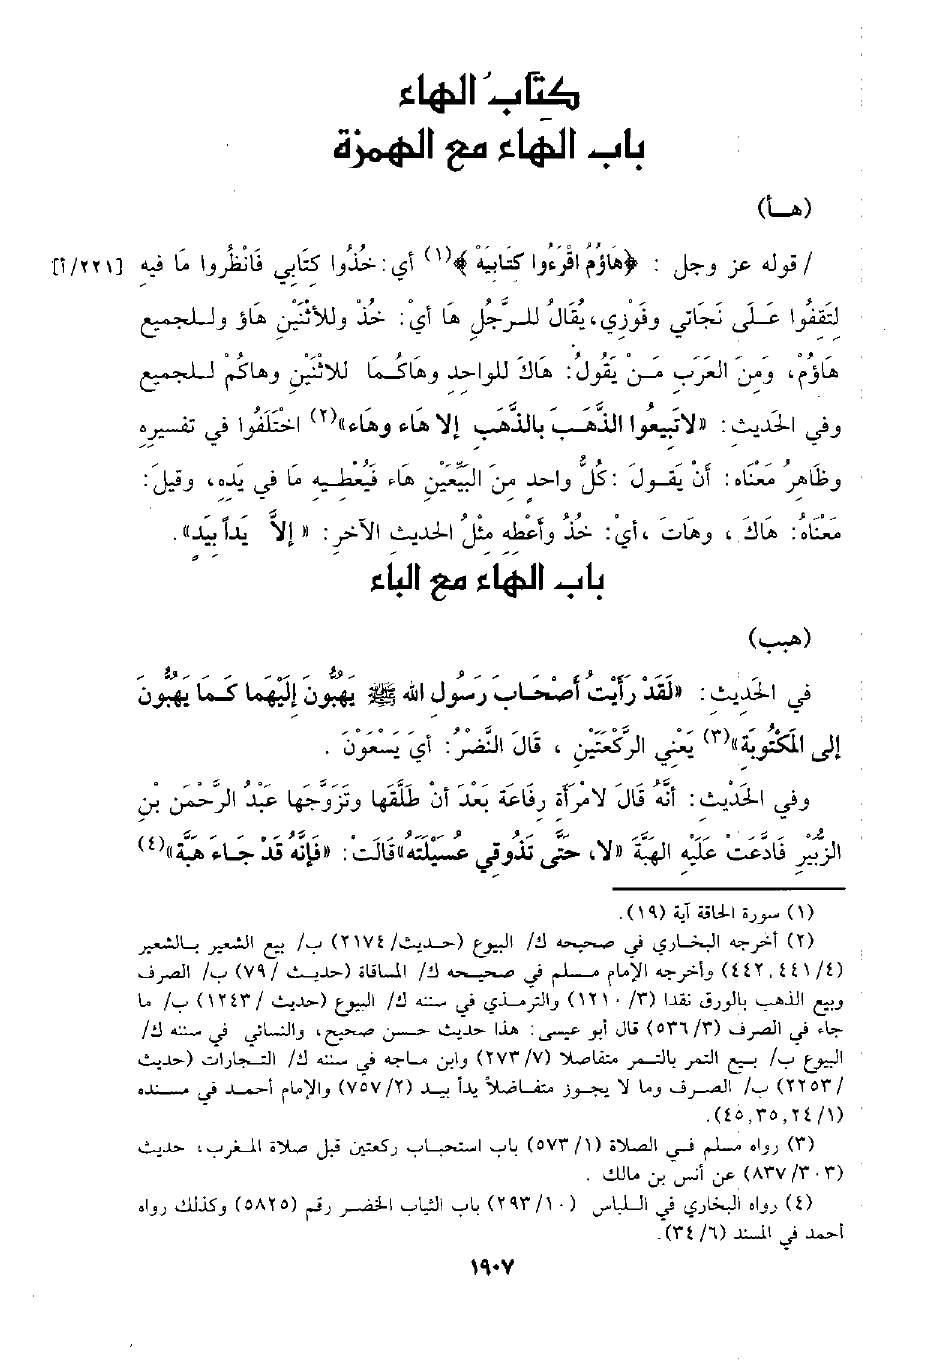 كِتَابُ الهاء
باب الهاء مع الهمزة
(هـأ)
/ قوله عز وجل : ﴿هَاؤُمُ اقْرَءُوا كِتَابِيَهْ﴾(١) أي: خُذُوا كِتَابِي فَانْظُروا مَا فيهِ [٢٢١/أ]
لتَقِفُوا عَلَى نَجَاتي وفَوْزي، يقَالُ للرَّجُلِ هَا أيْ: خذْ وللأثْنَيْنِ هَاؤ وللجميعِ
هَاؤُمْ، وَمِنَ العَرَبِ مَنْ يَقُولُ: هَاكَ للواحِدِ وهَاكُمَا للاثْنَيْنِ وهاكُمْ للجميعِ
وفي الحَدِيثِ: «لاتَبِيعُوا الذَّهَبَ بالذَّهَبِ إلا هَاء وهَاء»(٢) اخْتَلَفُوا في تفسيرِهِ
وظَاهِرُ مَعْنَاه: أنْ يَقُولَ :كُلُّ واحِدٍ مِنَ البَيِّعَيْنِ هَاء فَيُعْطِيهِ مَا في يَدِه، وقِيلَ:
مَعْنَاهُ: هَاكَ ، وهَاتَ ،أيْ: خذْ وأعْطِهِ مثْلُ الحَدِيثِ الآخرِ: « إلاَّ يَداً بِيَدٍ».
باب الهاء مع الباء
(هبب)
في الحَدِيثِ: «لَقَدْ رَأيْتُ أصْحَابَ رَسُولِ اللهِ ﷺ يَهُبُّونَ إلَيْهِمَا كَمَا يَهُبُّونَ
إلى المَكْتُوبَة»(٣) يَعْنِي الرَّكْعَتَيْنِ ، قَالَ النَّضْرُ: أيْ يَسْعَوْنَ .
وفي الحَدِيثِ: أنَّهُ قَالَ لامْرَأةِ رِفَاعَةَ بَعْدَ أنْ طَلَّقَهَا وتَزَوَّجَهَا عَبْدُ الرَّحْمَنِ بْنِ
الزُّبَيْرِ فَادَّعَتْ عَلَيْهِ الهِبَّةَ «لا، حَتَّى تَذُوقي عُسَيْلَتَهُ»قَالَتْ: «فَإنَّهُ قَدْ جَاءَ هَبَّةً»(٤)
(١) سورة الحاقة آية (١٩).
(٢) أخرجه البخاري في صحيحه ك/ البيوع (حديث/ ٢١٧٤) ب/ بيع الشعير بالشعير
(٤/ ٤٤١، ٤٤٢) وأخرجه الإمام مسلم في صحيحه ك/ المساقاة (حديث /٧٩) ب/ الصرف
وبيع الذهب بالورق نقدا (٣/ ١٢١٠) والترمذي في سننه ك/ البيوع (حديث /١٢٤٣) ب/ ما
جاء في الصرف (٣/ ٥٣٦) قال أبو عيسى: هذا حديث حسن صحيح، والنسائي في سننه ك/
البيوع ب/ بيع التمر بالتمر متفاضلا (٧/ ٢٧٣) وابن ماجه في سننه ك/ التجارات (حديث
/٢٢٥٣) ب/ الصرف وما لا يجوز متفاضلاً يداً بيد (٢/ ٧٥٧) والإمام أحمد في مسنده
(١/ ٢٤، ٣٥، ٤٥).
(٣) رواه مسلم في الصلاة (١/ ٥٧٣) باب استحباب ركعتين قبل صلاة المغرب، حديث
(٣٠٣/ ٨٣٧) عن أنس بن مالك .
(٤) رواه البخاري في اللباس (١٠/ ٢٩٣) باب الثياب الخضر رقم (٥٨٢٥) وكذلك رواه
أحمد في المسند (٦/ ٣٤).
١٩٠٧